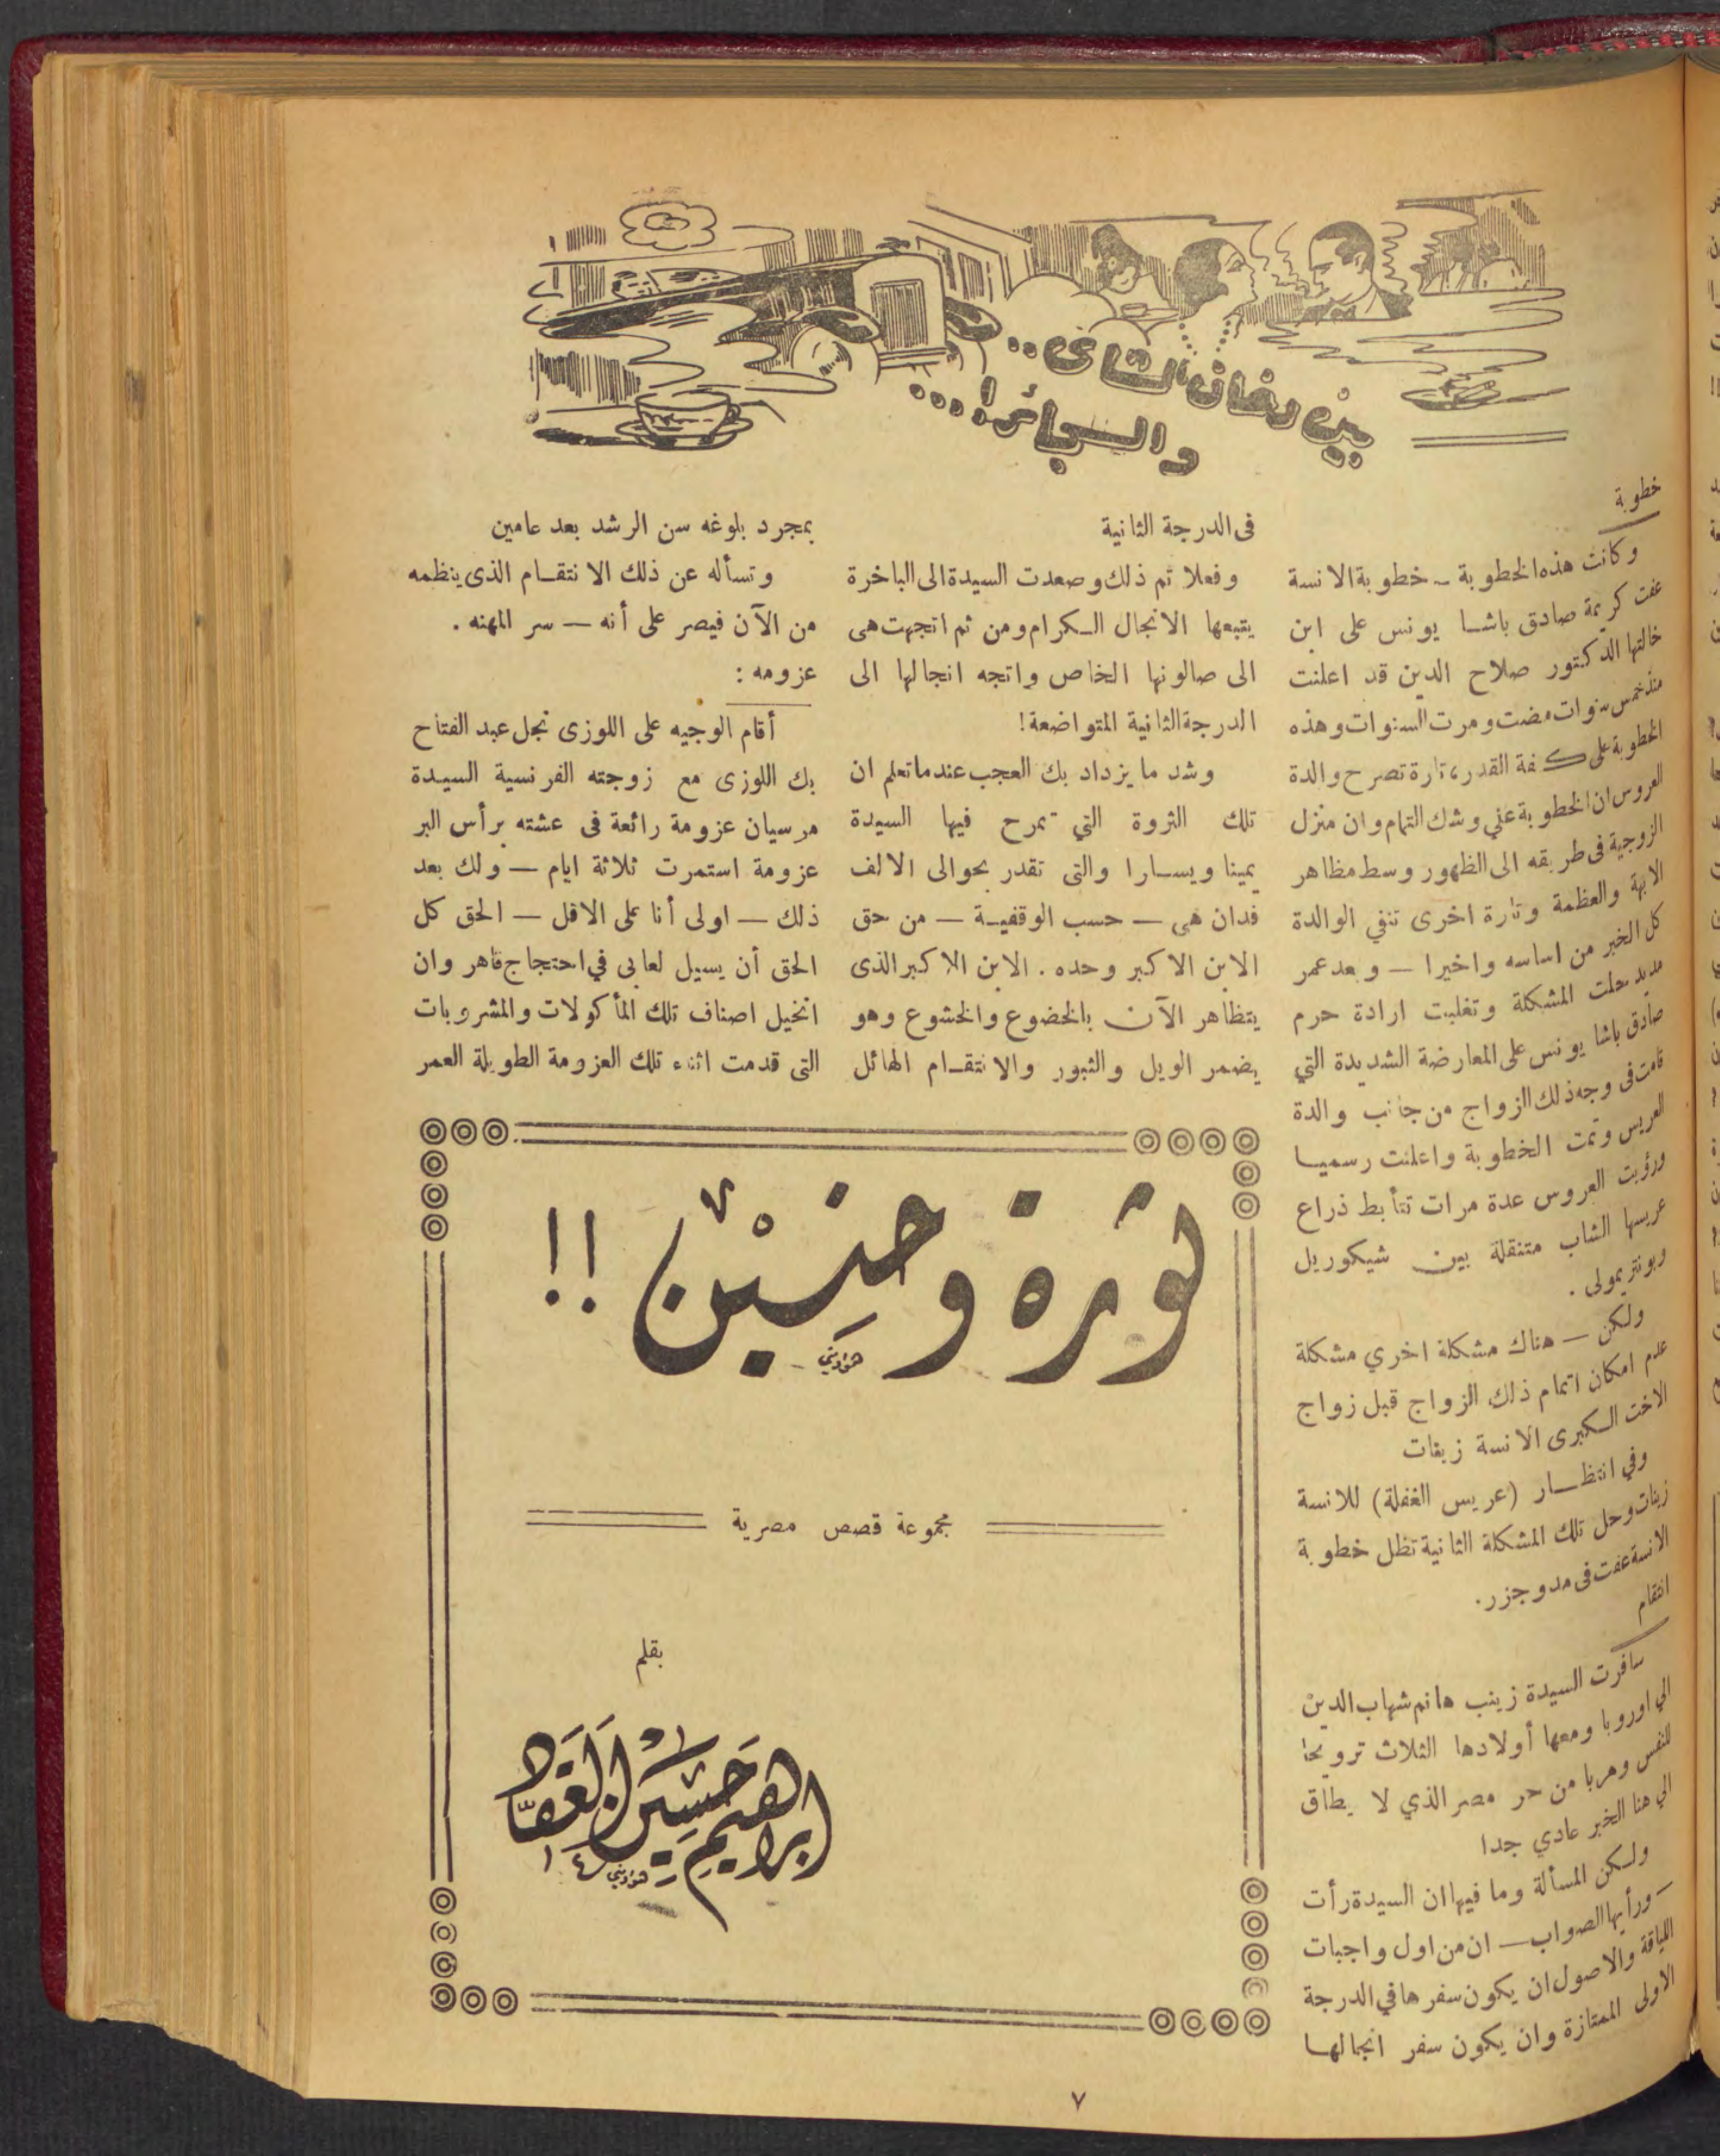 بين دخان الشاى..
والسجائر!...
خطوبة
وكانت هذه الخطوبة - خطوبة الانسة
عفت كريمة صادق باشا يونس على ابن
خالتها الدكتور صلاح الدين قد اعلنت
منذ خمس سنوات مضت ومرت السنوات وهذه
الخطوبة على كفة القدر، تارة تصرح والدة
العروس ان الخطوبة على وشك التمام وان منزل
الزوجية فى طريقه الى الظهور وسط مظاهر
الابهة والعظمة وتارة اخرى تنفي الوالدة
كل الخبر من اساسه واخيرا — وبعد عمر
مديد حلت المشكلة وتغلبت ارادة حرم
صادق باشا يونس على المعارضة الشديدة التي
قامت فى وجه ذلك الزواج من جانب والدة
العريس وتمت الخطوبة واعلنت رسميا
ورؤيت العروس عدة مرات تتأبط ذراع
عريسها الشاب متنقلة بين شيكوريل
وبونتريمولى .
ولكن — هناك مشكلة اخري مشكلة
عدم امكان اتمام ذلك الزواج قبل زواج
الاخت الكبرى الانسة زينات
وفي انتظار (عريس الغفلة) للانسة
زينات وحل تلك المشكلة الثانية تظل خطوبة
الانسة عفت فى مد وجزر.
انتقام
سافرت السيدة زينب هانم شهاب الدين
الي اوروبا ومعها أولادها الثلاث ترويحا
للنفس وهربا من حر مصر الذي لا يطاق
الي هنا الخبر عادي جدا
ولكن المسألة وما فيها ان السيدة رأت
— ورأيها الصواب — ان من اول واجبات
اللياقة والاصول ان يكون سفرها في الدرجة
الاولى الممتازة وان يكون سفر انجالها
فى الدرجة الثانية
وفعلا تم ذلك وصعدت السيدة الى الباخرة
يتبعها الانجال الكرام ومن ثم اتجهت هى
الى صالونها الخاص واتجه انجالها الى
الدرجة الثانية المتواضعة!
وشد ما يزداد بك العجب عندما تعلم ان
تلك الثروة التي تمرح فيها السيدة
يمينا ويسارا والتى تقدر بحوالى الالف
فدان هى — حسب الوقفية — من حق
الابن الاكبر وحده . الابن الاكبر الذى
يتظاهر الآن بالخضوع والخشوع وهو
يضمر الويل والثبور والانتقام الهائل
بمجرد بلوغه سن الرشد بعد عامين
وتسأله عن ذلك الانتقام الذى ينظمه
من الآن فيصر على أنه — سر المهنه .
عزومه :
أقام الوجيه على اللوزى نجل عبد الفتاح
بك اللوزى مع زوجته الفرنسية السيدة
مرسيان عزومة رائعة فى عشته برأس البر
عزومة استمرت ثلاثة ايام — ولك بعد
ذلك — اولى أنا على الاقل — الحق كل
الحق أن يسيل لعابى في احتجاج قاهر وان
اتخيل اصناف تلك المأكولات والمشروبات
التى قدمت اثناء تلك العزومة الطويلة العمر
ثورة وحنين !!
مجموعة قصص مصرية
بقلم
ابراهيم حسين العقاد
٧